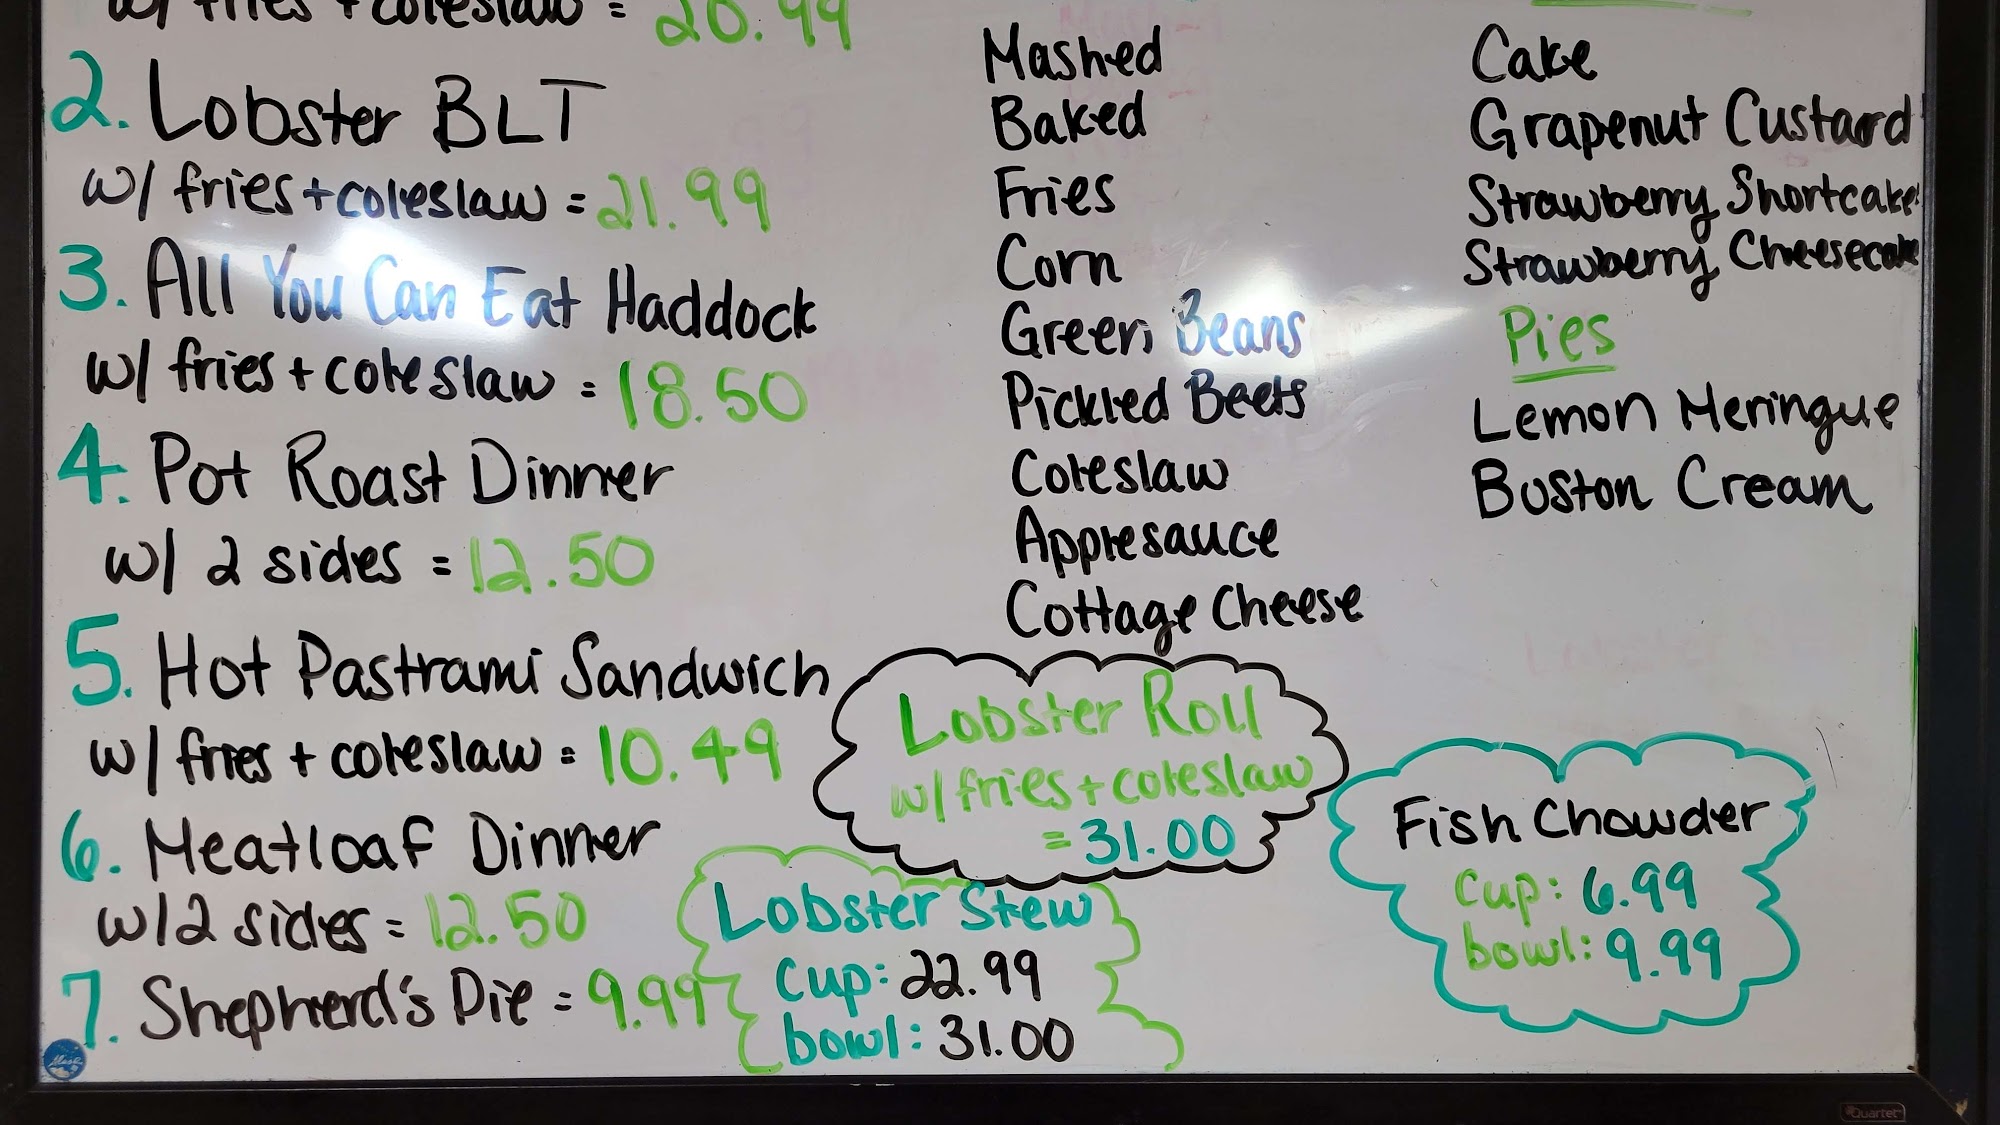 w/ fries + coleslaw = 20.99
2. Lobster BLT
w/ fries + coleslaw = 21.99
3. All You Can Eat Haddock
w/ fries + coleslaw = 18.50
4. Pot Roast Dinner
w/ 2 sides = 12.50
5. Hot Pastrami Sandwich
w/ fries + coleslaw = 10.49
6. Meatloaf Dinner
w/ 2 sides = 12.50
7. Shepherd's Pie = 9.99
Mashed
Baked
Fries
Corn
Green Beans
Pickled Beets
Coleslaw
Applesauce
Cottage Cheese
Cake
Grapenut Custard
Strawberry Shortcake
Strawberry Cheesecake
Pies
Lemon Meringue
Boston Cream
Lobster Roll
w/ fries + coleslaw
= 31.00
Lobster Stew
cup: 22.99
bowl: 31.00
Fish Chowder
cup: 6.99
bowl: 9.99
Quartet